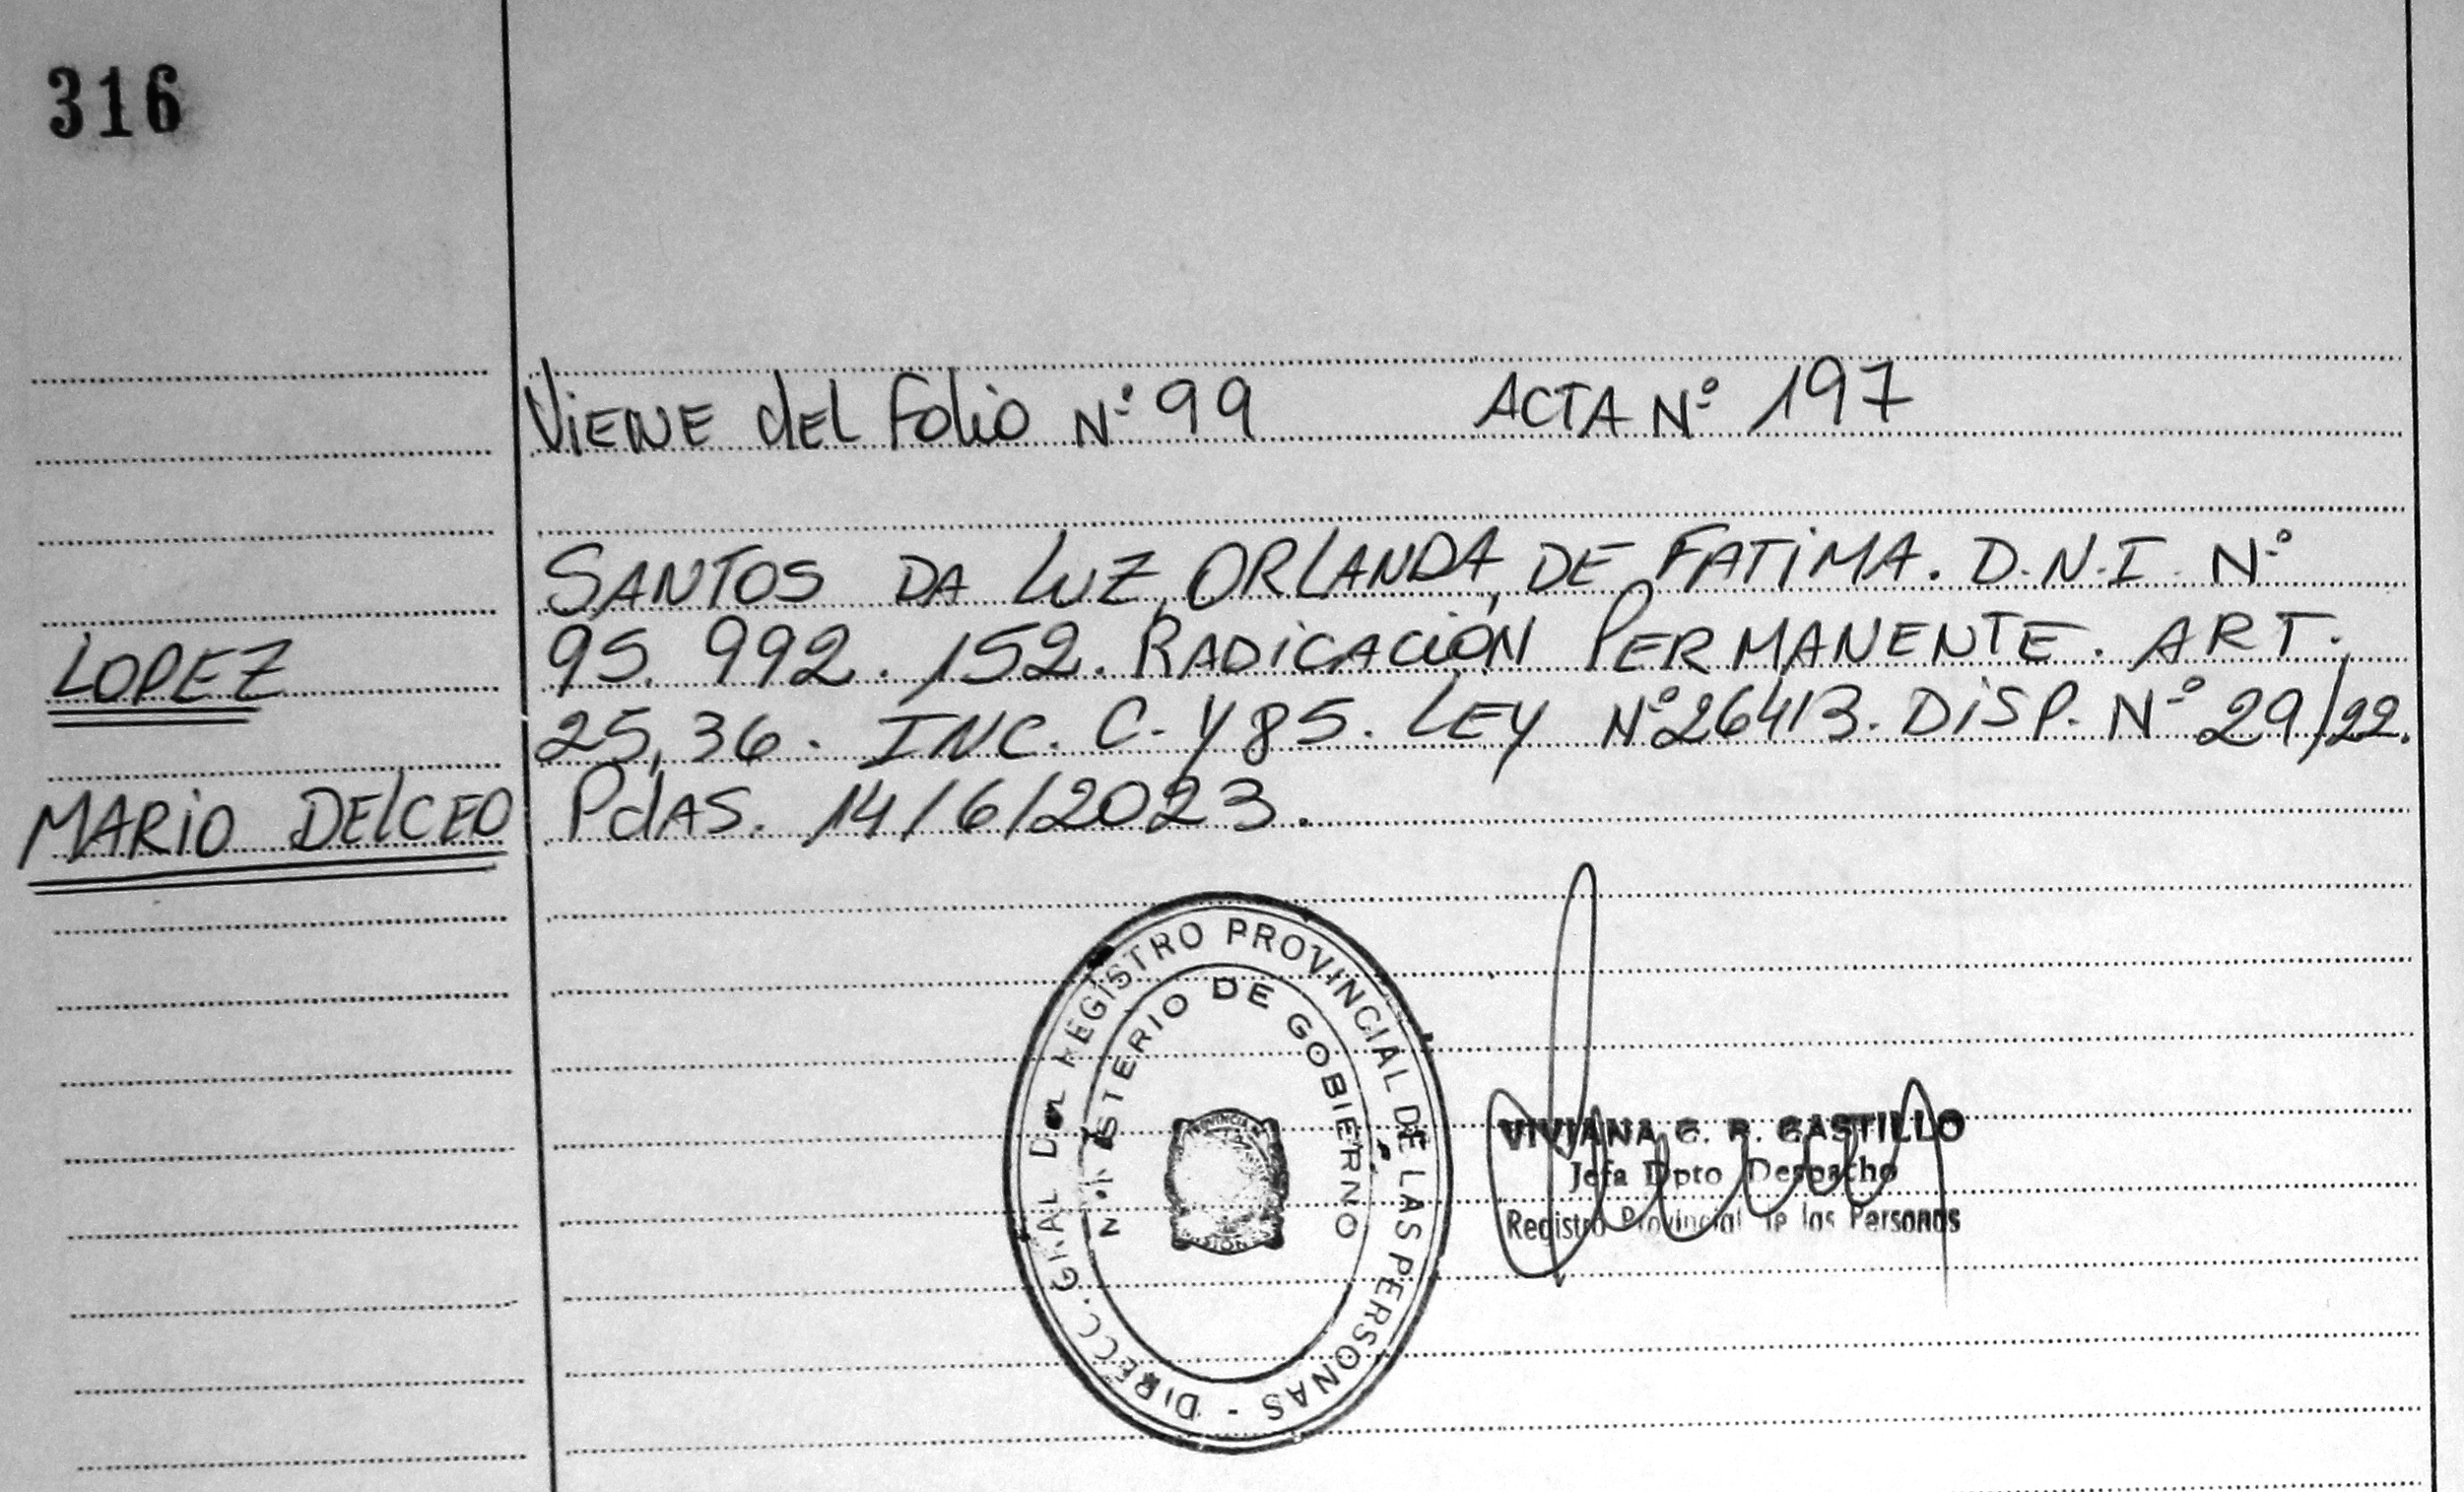 316
Viene del Folio N° 99 ACTA N° 197
SANTOS DA LUZ, ORLANDA, DE FATIMA. D.N.I. N°
95.992.152. RADICACIÓN PERMANENTE. ART.
LOPEZ
25, 36. INC. C. Y 85. LEY N° 26413. DISP. N° 29/22.
MARIO DELCEO
PdAS. 14/6/2023.
DIRECC. GRAL DEL REGISTRO PROVINCIAL DE LAS PERSONAS -
MINISTERIO DE GOBIERNO
VIVIANA G. R. CASTILLO
Jefa Dpto Despacho
Registro Provincial de las Personas